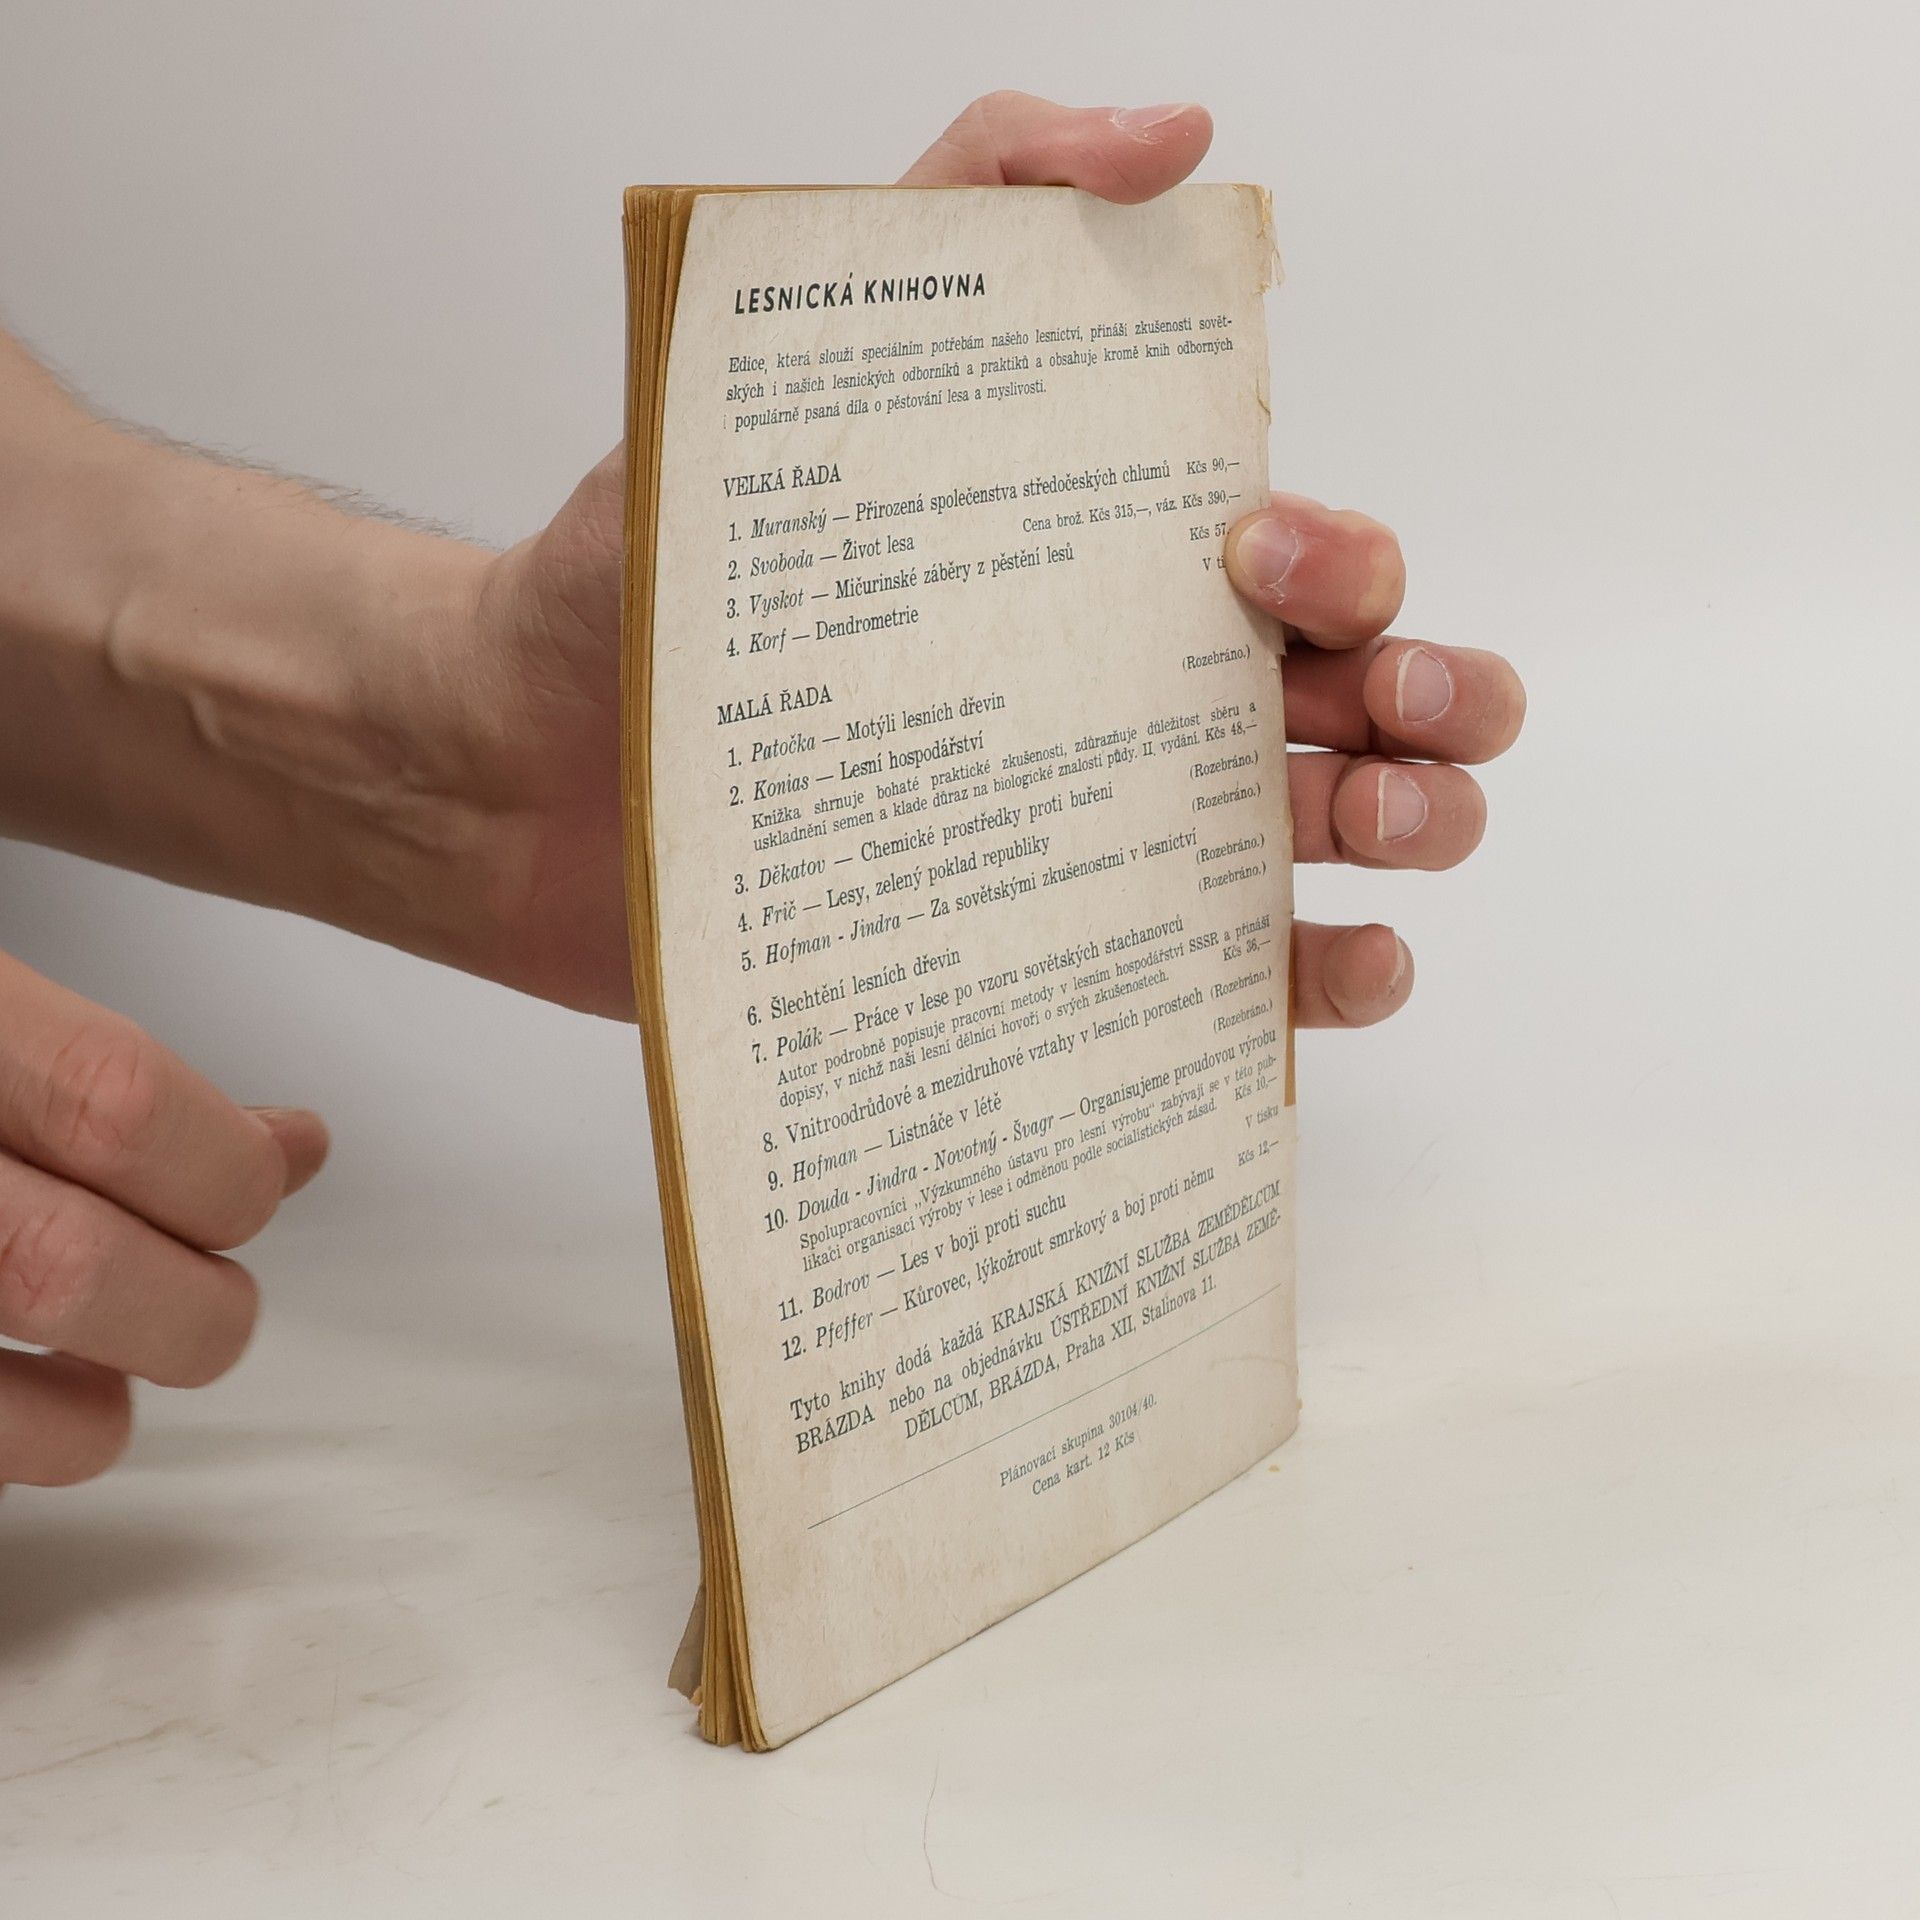 LESNICKÁ KNIHOVNA
Edice, která slouží speciálním potřebám našeho lesnictví, přináší zkušenosti sovět-
ských i našich lesnických odborníků a praktiků a obsahuje kromě knih odborných
i populárně psaná díla o pěstování lesa a myslivosti.
VELKÁ ŘADA
1. Muranský — Přirozená společenstva středočeských chlumů Kčs 90,—
2. Svoboda — Život lesa Cena brož. Kčs 315,—, váz. Kčs 390,—
3. Vyskot — Mičurinské záběry z pěstění lesů Kčs 57,
4. Korf — Dendrometrie V
MALÁ ŘADA
1. Patočka — Motýli lesních dřevin (Rozebráno.)
2. Konias — Lesní hospodářství
Knížka shrnuje bohaté praktické zkušenosti, zdůrazňuje důležitost sběru a
uskladnění semen a klade důraz na biologické znalosti půdy. II. vydání. Kčs 48,—
3. Děkatov — Chemické prostředky proti buřeni (Rozebráno.)
4. Frič — Lesy, zelený poklad republiky (Rozebráno.)
5. Hofman - Jindra — Za sovětskými zkušenostmi v lesnictví
(Rozebráno.)
6. Šlechtění lesních dřevin (Rozebráno.)
7. Polák — Práce v lese po vzoru sovětských stachanovců
Autor podrobně popisuje pracovní metody v lesním hospodářství SSSR a přináší
dopisy, v nichž naši lesní dělníci hovoří o svých zkušenostech. Kčs 36,—
8. Vnitroodrůdové a mezidruhové vztahy v lesních porostech (Rozebráno.)
9. Hofman — Listnáče v létě (Rozebráno.)
10. Douda - Jindra - Novotný - Švagr — Organisujeme proudovou výrobu
Spolupracovníci „Výzkumného ústavu pro lesní výrobu“ zabývají se v této pub-
likaci organisací výroby v lese i odměnou podle socialistických zásad. Kčs 10,—
11. Bodrov — Les v boji proti suchu V tisku
12. Pfeffer — Kůrovec, lýkožrout smrkový a boj proti němu Kčs 12,—
Tyto knihy dodá každá KRAJSKÁ KNIŽNÍ SLUŽBA ZEMĚDĚLCŮM
BRÁZDA nebo na objednávku ÚSTŘEDNÍ KNIŽNÍ SLUŽBA ZEMĚ-
DĚLCŮM, BRÁZDA, Praha XII, Stalinova 11.
Plánovací skupina 30104/40.
Cena kart. 12 Kčs